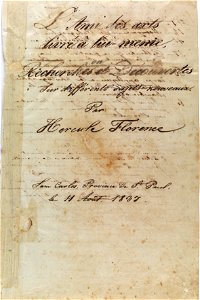 L'Ami des arts
livré à lui-même
ou
Recherches et Découvertes
Sur différents sujets nouveaux
Par
Hercule Florence
San Carlos, Province de St. Paul
le 11 Août 1837